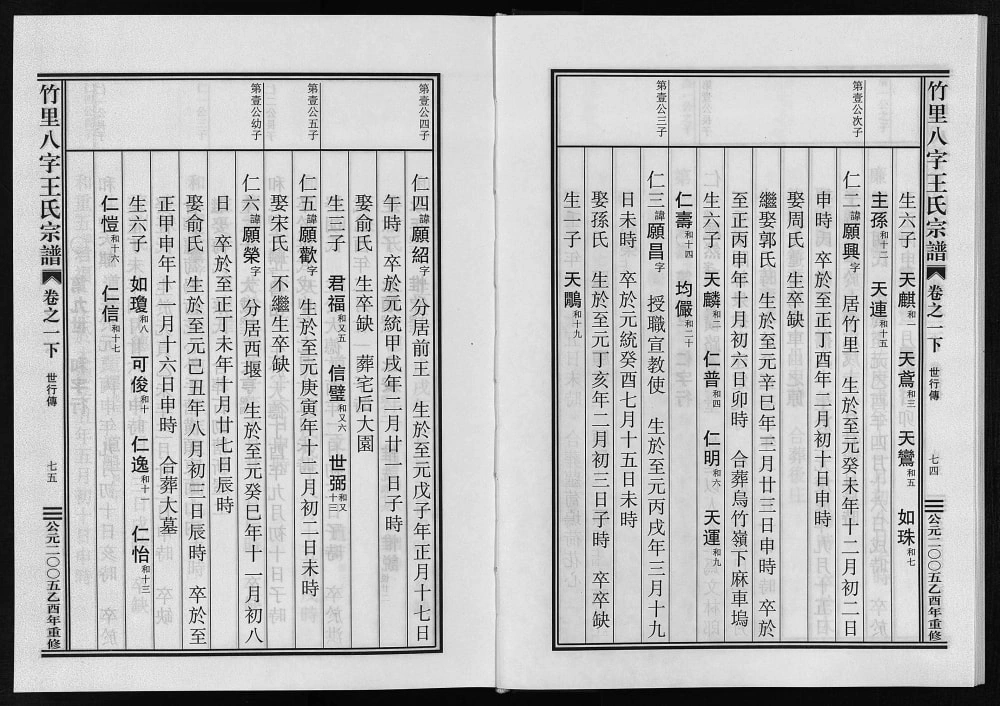 竹里八字王氏宗譜 卷之一下 世行傳 七四 公元二〇〇五乙酉年重修
生六子 天麒和一 天鳶和三 天鸞和五 如珠和七
主孫和十二 天連和十五
第壹公次子
仁二諱願興字 居竹里 生於至元癸未年十二月初二日
申時 卒於至正丁酉年二月初十日申時
娶周氏 生卒缺
繼娶郭氏 生於至元辛巳年三月廿三日申時 卒於
至正丙申年十月初六日卯時 合葬烏竹嶺下麻車塢
生六子 天麟和二 仁普和四 仁明和六 天運和九
仁壽和十四 均儼和二十
第壹公三子
仁三諱願昌字 授職宣教使 生於至元丙戌年三月十九
日未時 卒於元統癸酉七月十五日未時
娶孫氏 生於至元丁亥年二月初三日子時 卒卒缺
生一子 天鵰和十九
第壹公四子
仁四諱願紹字 分居前王 生於至元戊子年正月十七日
午時 卒於元統甲戌年二月廿一日子時
娶俞氏 生卒缺 葬宅后大園
生三子 君福和又五 信璧和又六 世弼和又十三
第壹公五子
仁五諱願歡字 生於至元庚寅年十二月初二日未時
娶宋氏 不繼生卒缺
第壹公幼子
仁六諱願榮字 分居西堰 生於至元癸巳年十一月初八
日 卒於至正丁未年十月廿七日辰時
娶俞氏 生於至元己丑年八月初三日辰時 卒於至
正甲申年十一月十六日申時 合葬大墓
生六子 如瓊和八 可俊和十 仁逸和十一 仁怡和十三
仁愷和十六 仁信和十七
竹里八字王氏宗譜 卷之一下 世行傳 七五 公元二〇〇五乙酉年重修